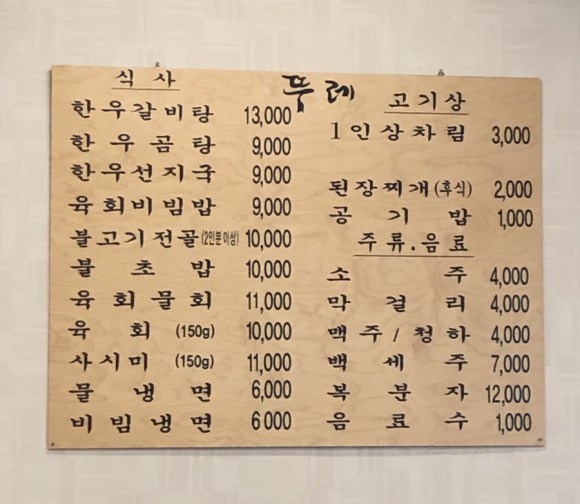 뚜레
식 사
한우갈비탕 13,000
한우곰탕 9,000
한우선지국 9,000
육회비빔밥 9,000
불고기전골(2인분이상) 10,000
불초밥 10,000
육회물회 11,000
육회 (150g) 10,000
사시미 (150g) 11,000
물냉면 6,000
비빔냉면 6000
고기상
1인상차림 3,000
된장찌개(후식) 2,000
공기밥 1,000
주류.음료
소주 4,000
막걸리 4,000
맥주/청하 4,000
백세주 7,000
복분자 12,000
음료수 1,000